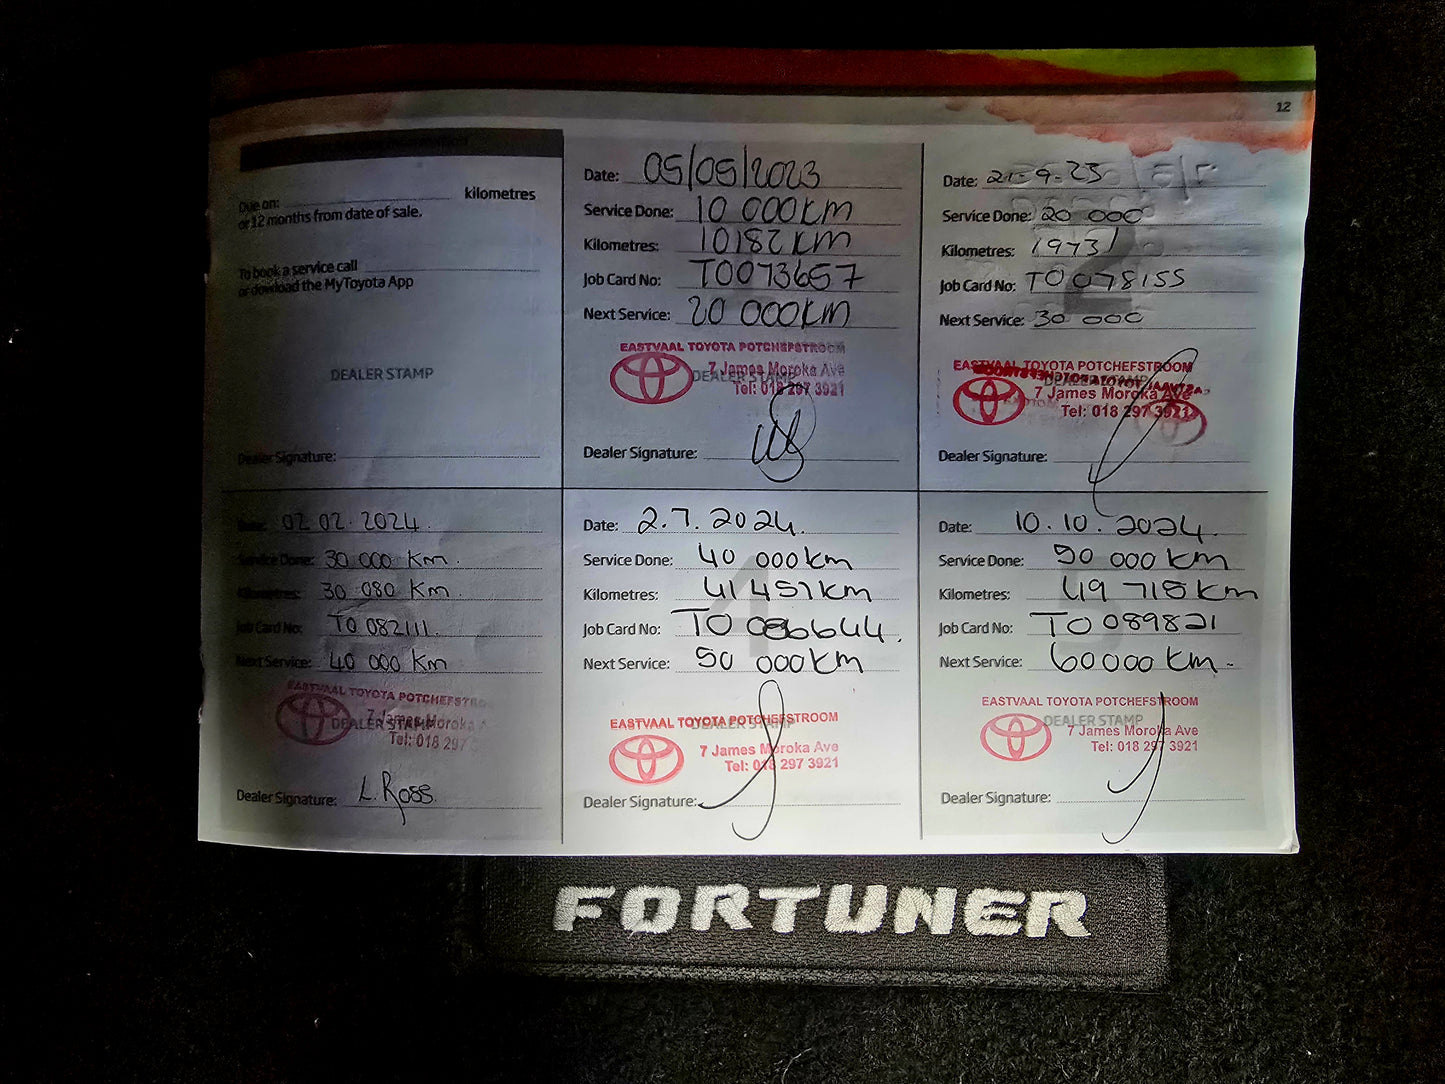 12
Due on: kilometres
or 12 months from date of sale.
To book a service call
or dowload the MyToyota App
DEALER STAMP
Dealer Signature:
Date: 05/05/2023
Service Done: 10 000KM
Kilometres: 10182KM
Job Card No: T0073657
Next Service: 20 000KM
EASTVAAL TOYOTA POTCHEFSTROOM
DEALER STAMP
7 James Moroka Ave
Tel: 018 297 3921
Dealer Signature:
Date: 21-9-23
Service Done: 20 000
Kilometres: 19731
Job Card No: T0078155
Next Service: 30 000
EASTVAAL TOYOTA POTCHEFSTROOM
DEALER STAMP
7 James Moroka Ave
Tel: 018 297 3921
Dealer Signature:
Date: 02.02.2024.
Service Done: 30 000 Km.
Kilometres: 30 080 Km
Job Card No: T0 082111.
Next Service: 40 000 Km
EASTVAAL TOYOTA POTCHEFSTRO
DEALER STAMP
7 James Moroka A
Tel: 018 297 3
Dealer Signature: L. Ross.
Date: 2.7.2024.
Service Done: 40 000km
Kilometres: 41 457km
Job Card No: T0 086644.
Next Service: 50 000km
EASTVAAL TOYOTA POTCHEFSTROOM
DEALER STAMP
7 James Moroka Ave
Tel: 018 297 3921
Dealer Signature:
Date: 10.10.2024.
Service Done: 50 000km
Kilometres: 49 718km
Job Card No: T0089821
Next Service: 60000km.
EASTVAAL TOYOTA POTCHEFSTROOM
DEALER STAMP
7 James Moroka Ave
Tel: 018 297 3921
Dealer Signature:
FORTUNER